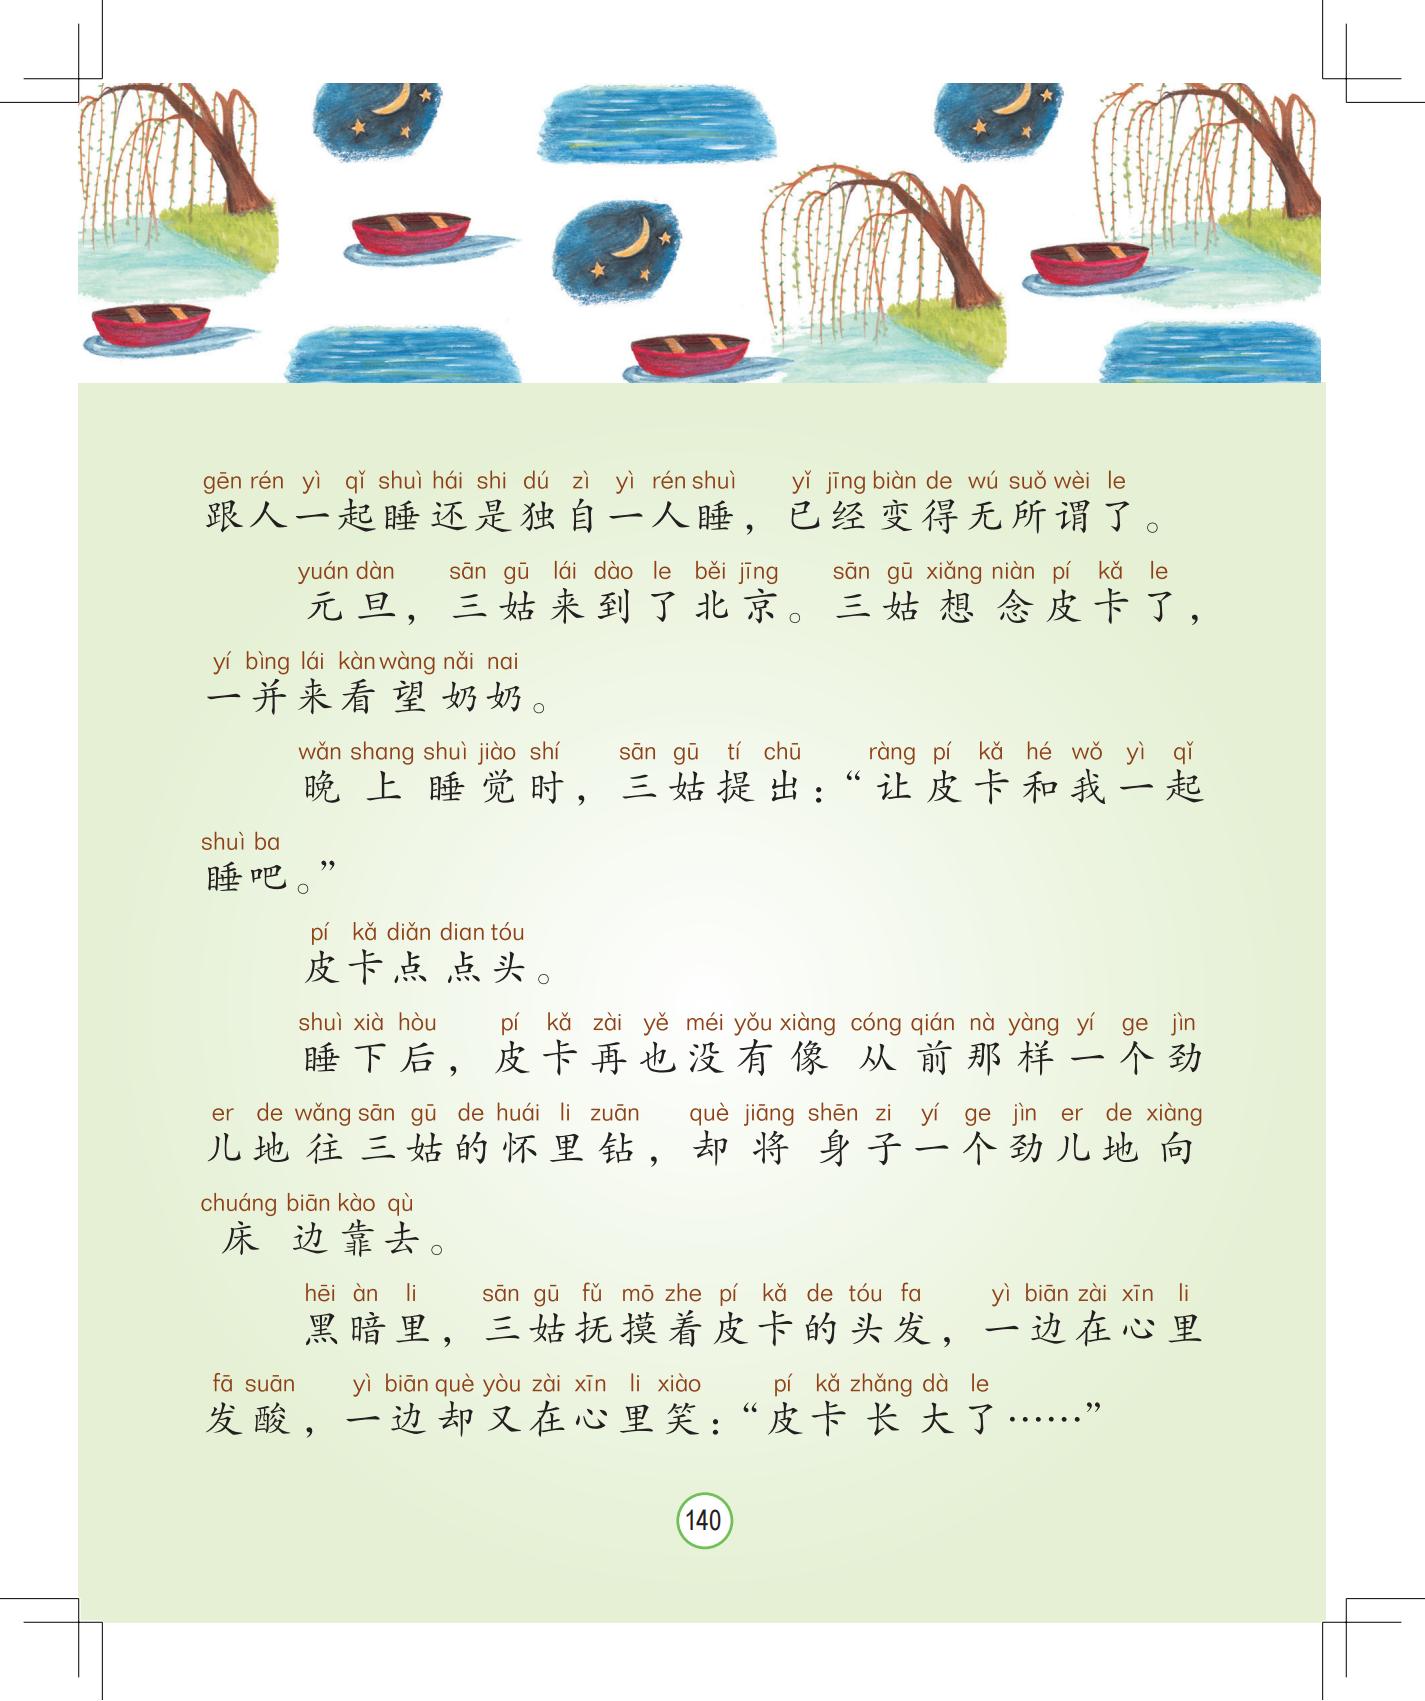 gēn rén yì qǐ shuì hái shi dú zì yì rén shuì yǐ jīng biàn de wú suǒ wèi le
跟人一起睡还是独自一人睡，已经变得无所谓了。
yuán dàn sān gū lái dào le běi jīng sān gū xiǎng niàn pí kǎ le
元旦，三姑来到了北京。三姑想念皮卡了，
yí bìng lái kàn wàng nǎi nai
一并来看望奶奶。
wǎn shang shuì jiào shí sān gū tí chū ràng pí kǎ hé wǒ yì qǐ
晚上睡觉时，三姑提出：“让皮卡和我一起
shuì ba
睡吧。”
pí kǎ diǎn dian tóu
皮卡点点头。
shuì xià hòu pí kǎ zài yě méi yǒu xiàng cóng qián nà yàng yí ge jìn
睡下后，皮卡再也没有像从前那样一个劲
er de wǎng sān gū de huái li zuān què jiāng shēn zi yí ge jìn er de xiàng
儿地往三姑的怀里钻，却将身子一个劲儿地向
chuáng biān kào qù
床边靠去。
hēi àn li sān gū fǔ mō zhe pí kǎ de tóu fa yì biān zài xīn li
黑暗里，三姑抚摸着皮卡的头发，一边在心里
fā suān yì biān què yòu zài xīn li xiào pí kǎ zhǎng dà le
发酸，一边却又在心里笑：“皮卡长大了……”
140